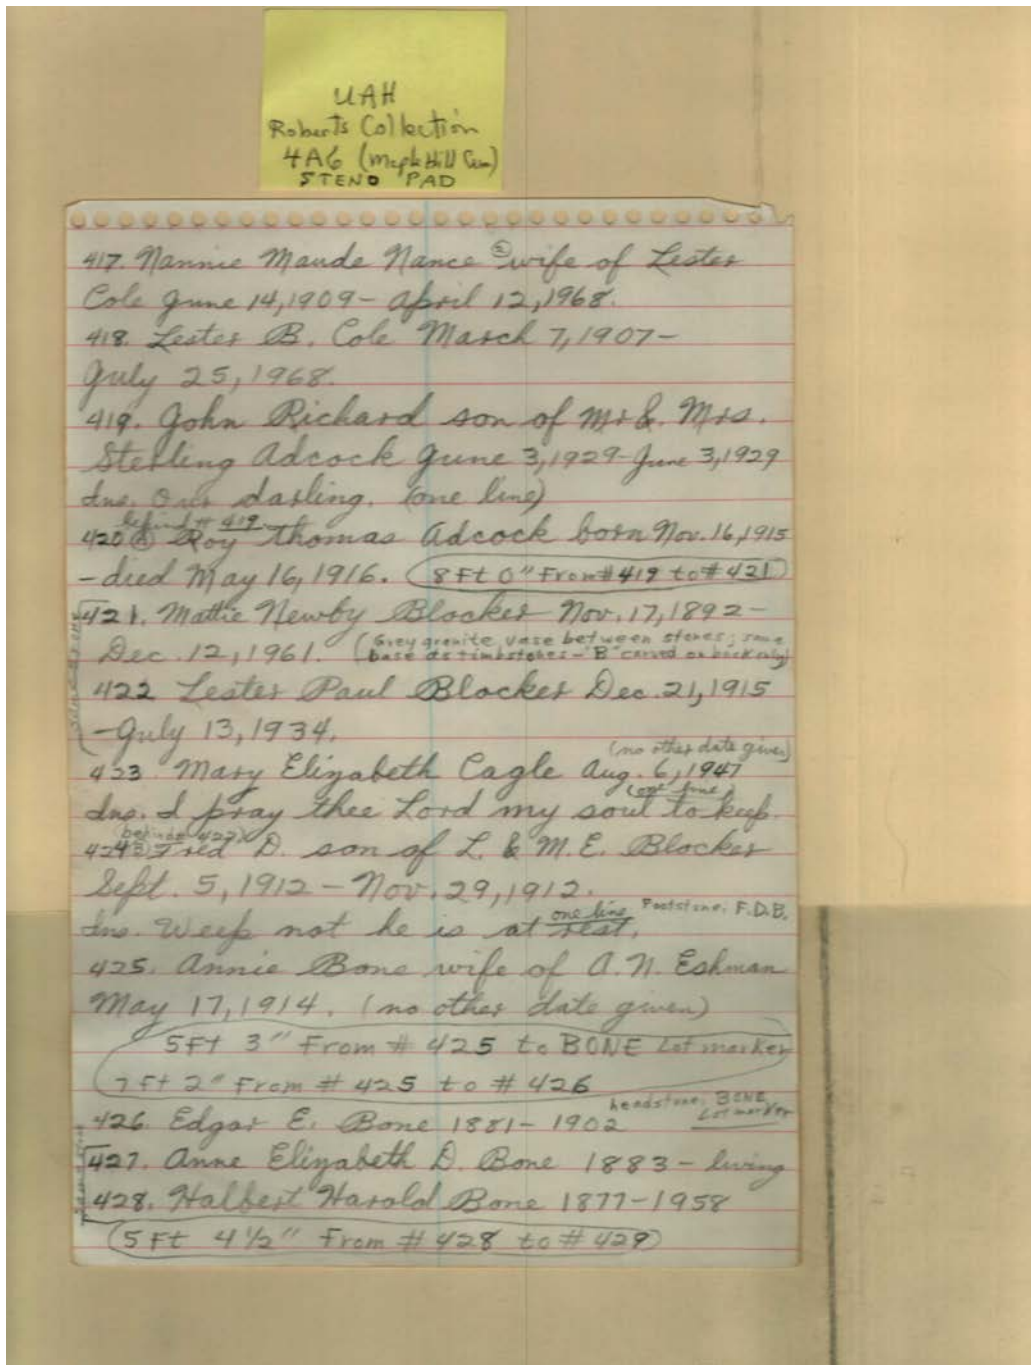 UAH
Roberts Collection
4A6 (Maple Hill Cem)
STENO PAD
417. Nannie Maude Nance ② wife of Lester
Cole June 14, 1909 - April 12, 1968.
418. Lester B. Cole March 7, 1907 -
July 25, 1968.
419. John Richard son of Mr & Mrs.
Sterling Adcock June 3, 1929 - June 3, 1929
Ins. Our darling. (one line)
behind # 419
420 Roy Thomas Adcock born Nov. 16, 1915
- died May 16, 1916. (8 Ft 0" From # 419 to # 421)
421. Mattie Newby Blocker Nov. 17, 1892 -
Dec. 12, 1961. (Grey granite vase between stones; same
base as tombstones - "B" carved on back only)
422 Lester Paul Blocker Dec. 21, 1915
- July 13, 1934.
(no other date given)
423. Mary Elizabeth Cagle Aug. 6, 1947
(one line)
Ins. I pray thee Lord my soul to keep.
(behind 422)
424 Fred D. son of L. & M.E. Blocker
Sept. 5, 1912 - Nov. 29, 1912.
one line Footstone, F.D.B.
Ins. Weep not he is at rest.
425. Annie Bone wife of A.N. Eshman
May 17, 1914. (no other date given)
5 Ft 3" From # 425 to BONE Lot marker
7 Ft 2" From # 425 to # 426
headstone, BONE
Lot marker
426. Edgar E. Bone 1881 - 1902
427. Anne Elizabeth D. Bone 1883 - living
428. Halbert Harold Bone 1877 - 1958
(5 Ft 4 1/2" From # 428 to # 429)